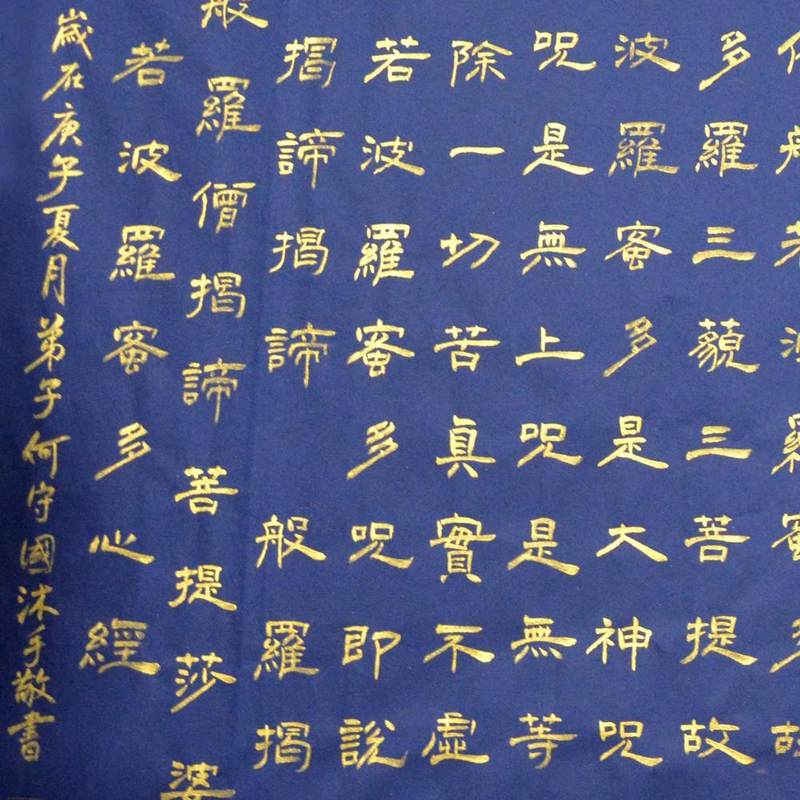 般若波羅蜜多故
多羅三藐三菩提故
波羅蜜多是大神呪
呪是無上呪是無等
除一切苦眞實不虛
若波羅蜜多呪即說
揭諦揭諦 般羅揭
般羅僧揭諦菩提莎婆
若波羅蜜多心經
歲在庚午夏月弟子何守國沐手敬書